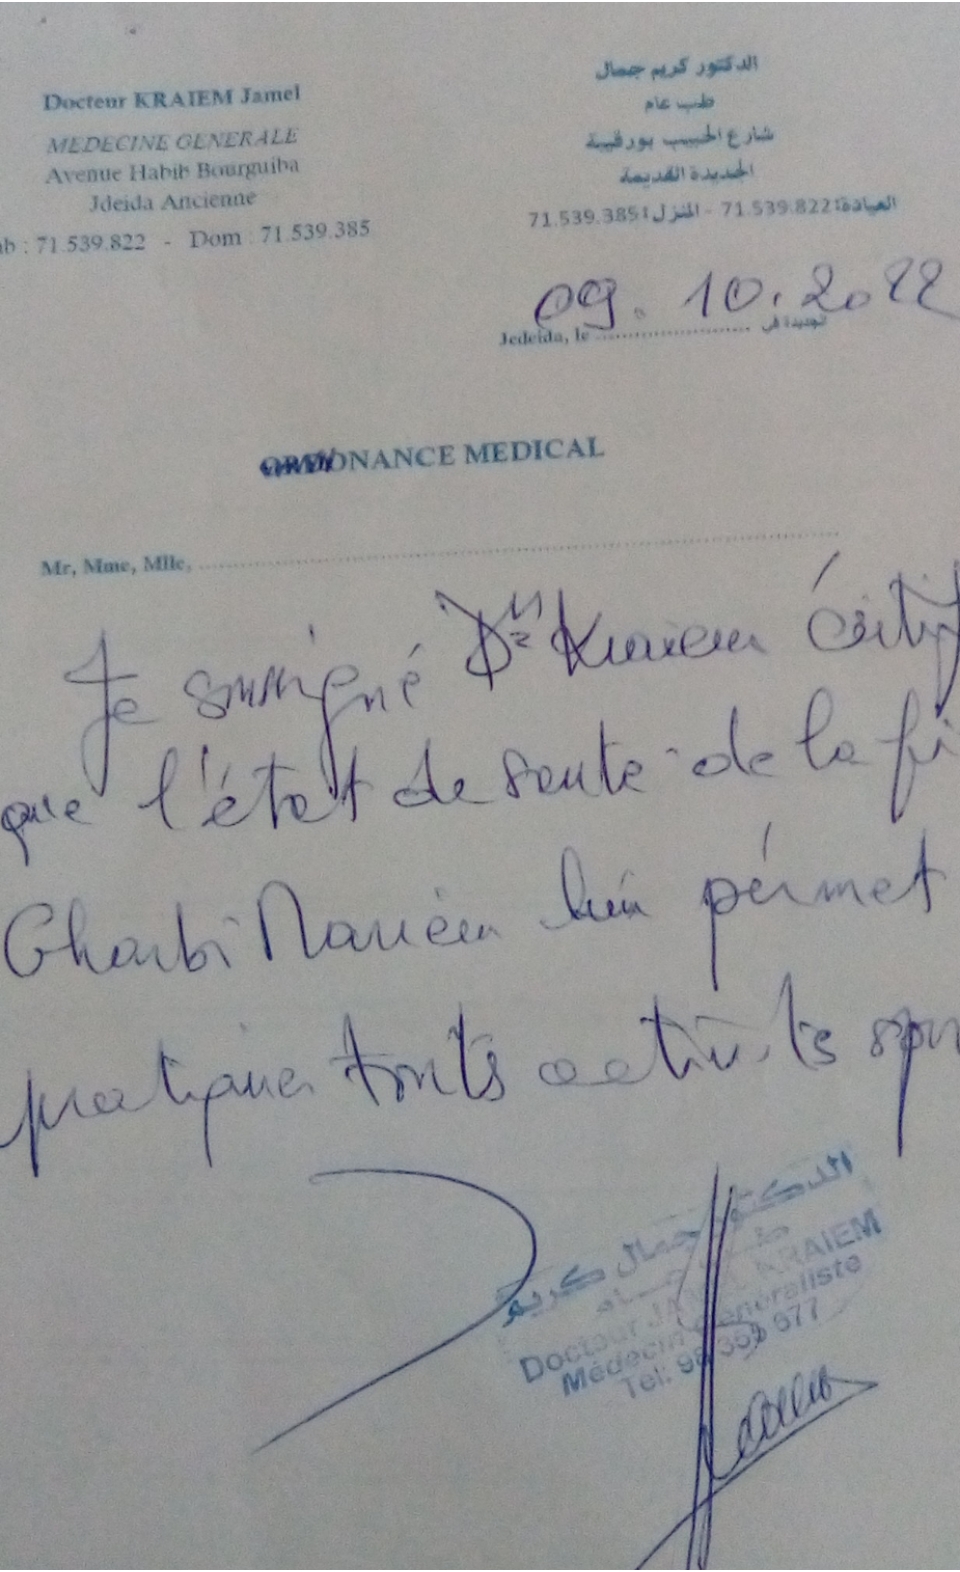 Docteur KRAIEM Jamel
MEDECINE GENERALE
Avenue Habib Bourguiba
Jdeida Ancienne
ab : 71.539.822 - Dom : 71.539.385
الدكتور كريم جمال
طب عام
شارع الحبيب بورقيبة
الجديدة القديمة
العيادة: 71.539.822 - المنزل: 71.539.385
09.10.2022
Jedeida, le .......... الجديدة في
ORDONANCE MEDICAL
Mr, Mme, Mlle, ..........
Je soussigné Dr Kraiem
que l'état de santé de la fi
Gharbi Mariem lui pérmet
pratiquer touts activités spor
الدكتور جمال كريم
طب عام
Docteur JAMEL KRAIEM
Médecin Généraliste
Tel: 98 359 577